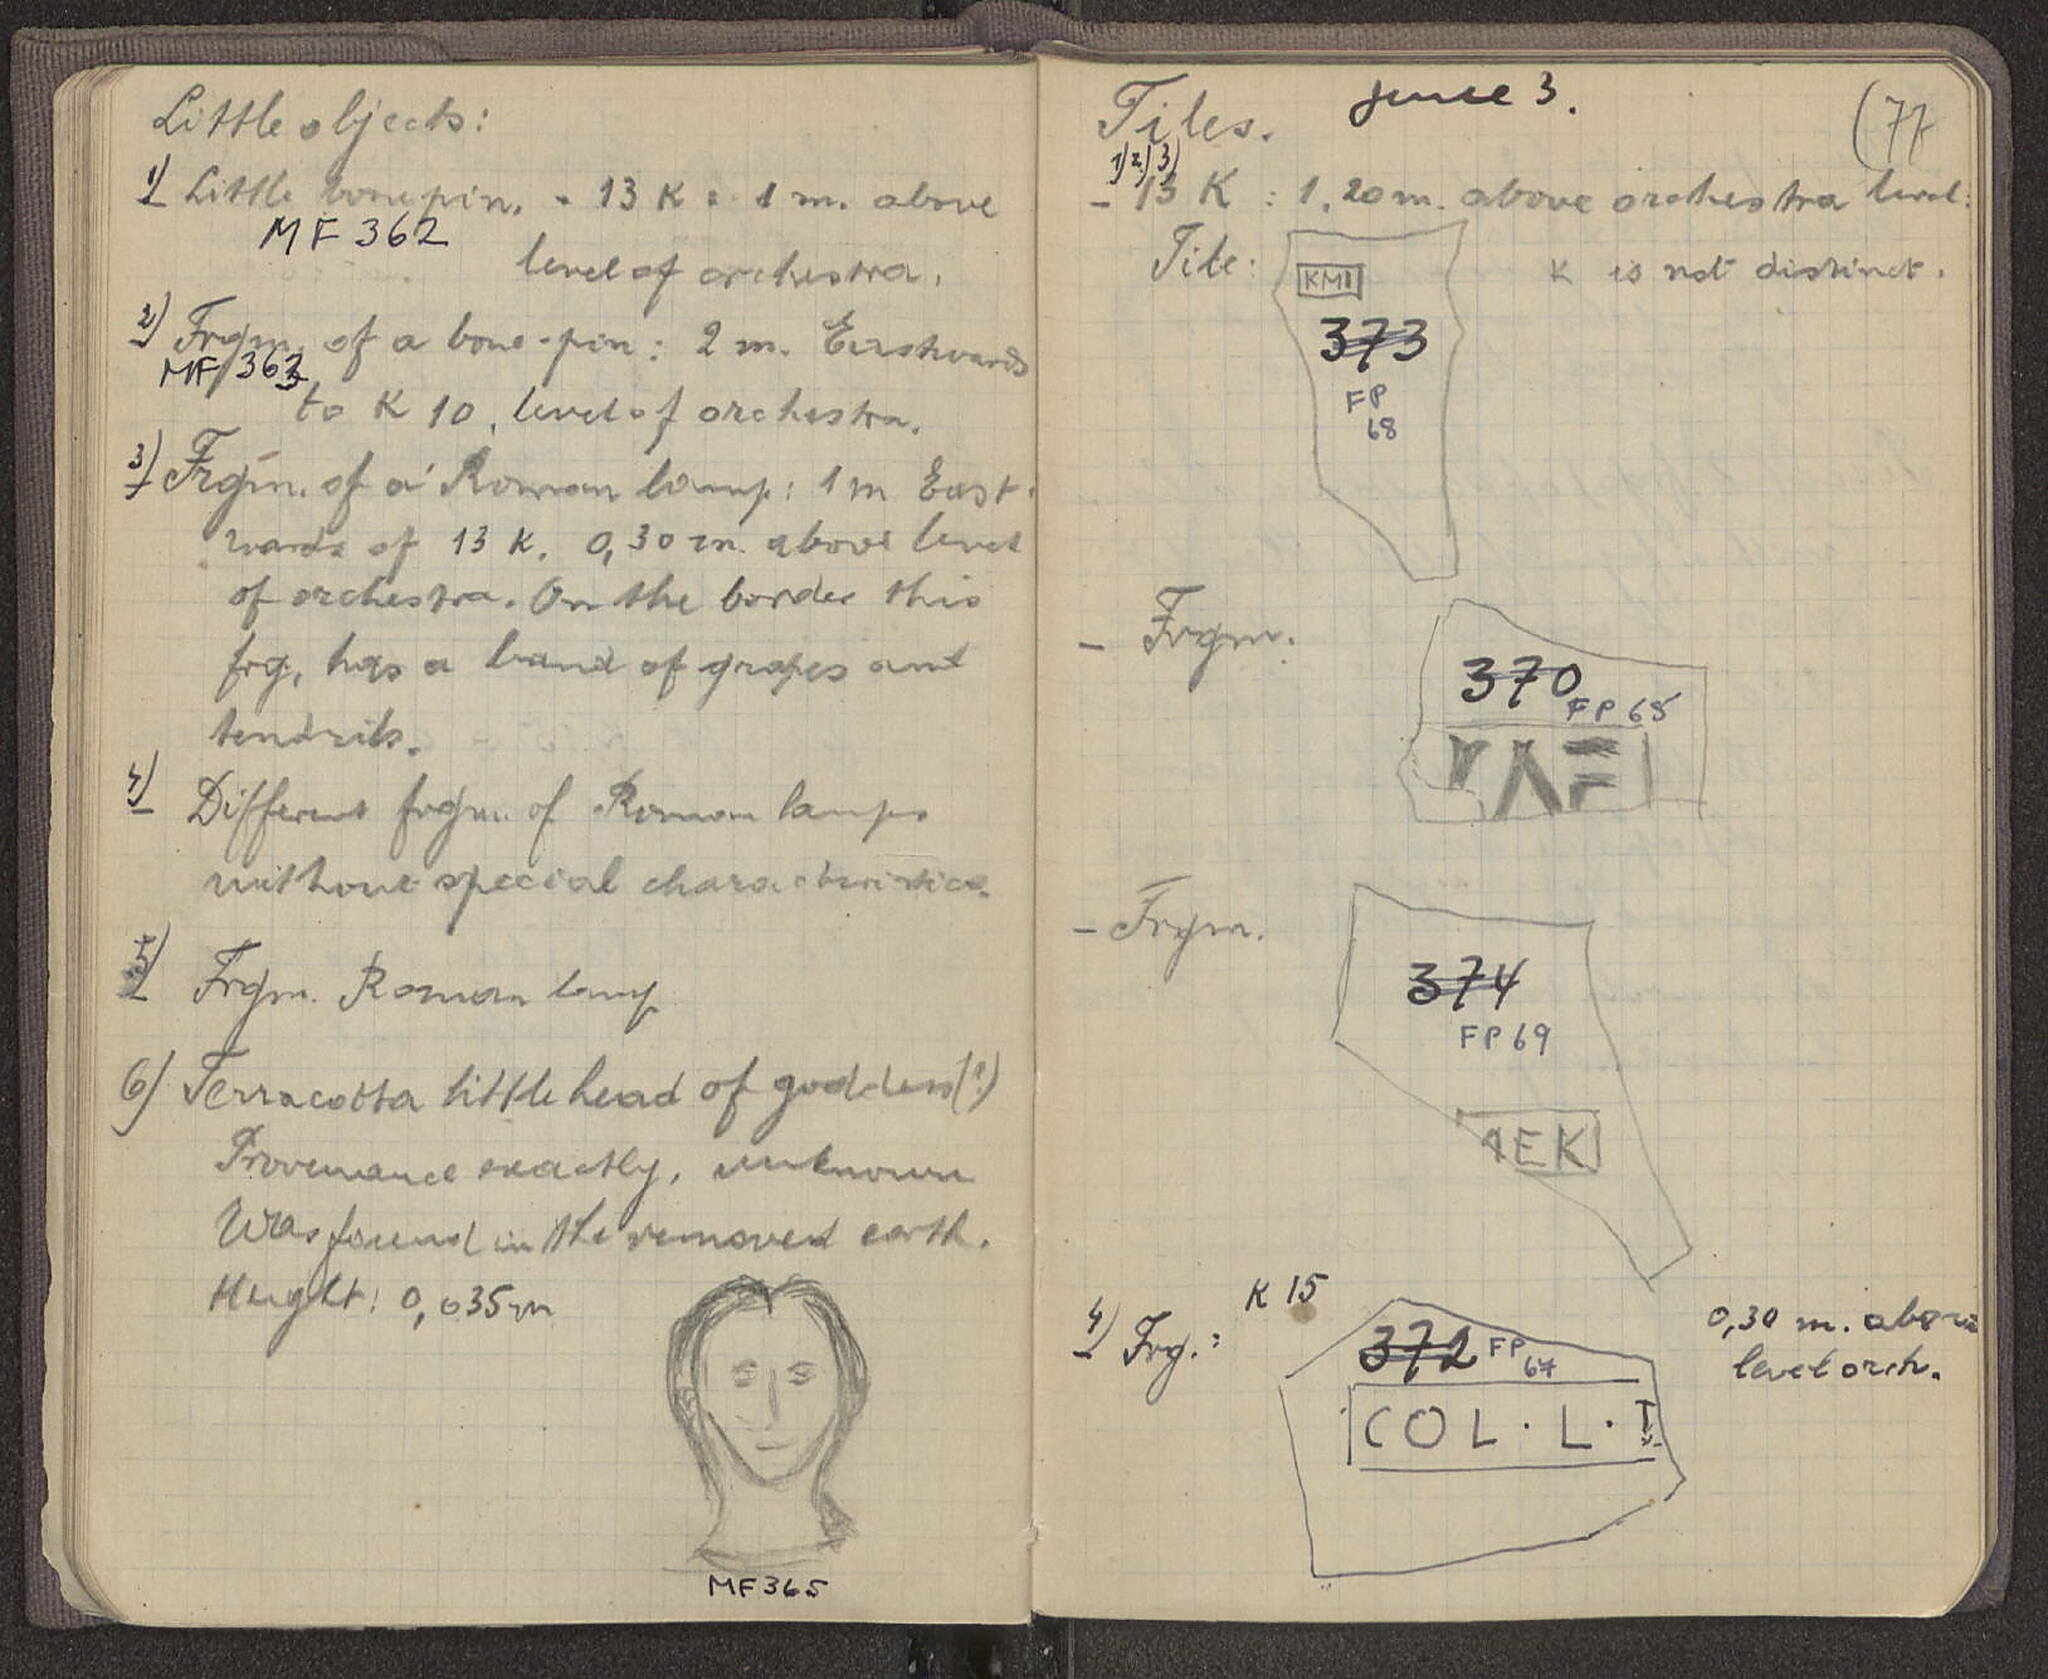 Little objects:
1) Little bone pin. - 13 K : 1 m. above
MF 362
level of orchestra.
2) Frgm. of a bone-pin: 2 m. Eastwards
MF 363
to K 10, level of orchestra.
3) Frgm. of a Roman lamp: 1 m East-
wards of 13 K. 0,30 m. above level
of orchestra. On the border this
frg. has a band of grapes and
tendrils.
4) Different frgm. of Roman lamps
without special characteristics.
5) Frgm. Roman lamp
6) Terracotta little head of goddess(?)
Provenance exactly, unknown
Was found in the removed earth.
Height: 0,035 m
MF 365
Tiles. June 3. 77
1) 2) 3)
- 13 K : 1.20 m. above orchestra level:
Tile: K is not distinct.
KMI
373
FP
68
- Frgm.
370
FP 65
- Frgm.
374
FP 69
ΛEK
4) Frg.: K 15
372 FP
67
COL · L · I
0,30 m. above
level orch.